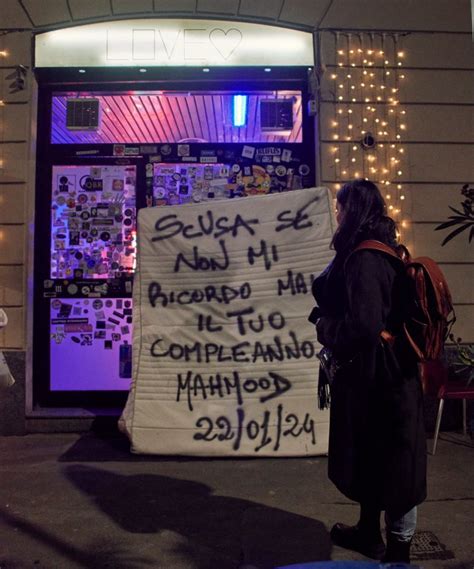 LOVE♡
SCUSA SE
NON MI
RICORDO MAI
IL TUO
COMPLEANNO
MAHMOOD
22/01/24